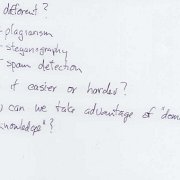 different?
- plagiarism
- steganography
- spam detection
it easier or harder?
can we take advantage of "dom
knowledge"?